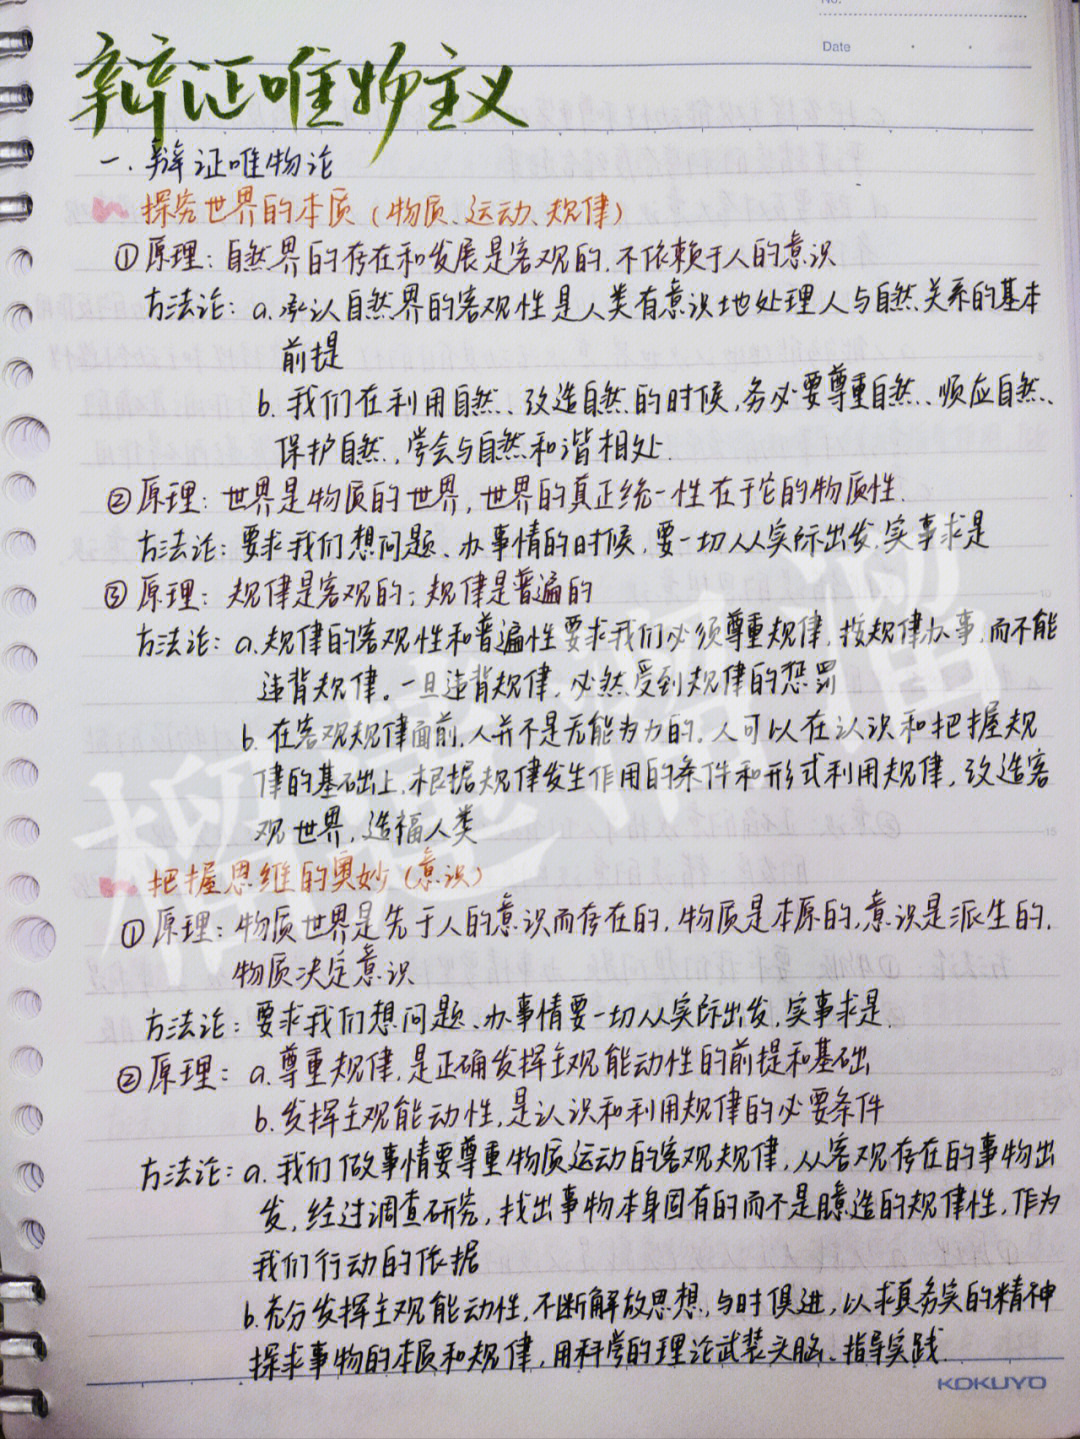 No.
Date
辩证唯物主义
一. 辩证唯物论
探究世界的本质(物质、运动、规律)
①原理：自然界的存在和发展是客观的,不依赖于人的意识
方法论：a.承认自然界的客观性是人类有意识地处理人与自然关系的基本
前提
b.我们在利用自然、改造自然的时候,务必要尊重自然、顺应自然、
保护自然,学会与自然和谐相处.
②原理：世界是物质的世界,世界的真正统一性在于它的物质性.
方法论：要求我们想问题、办事情的时候,要一切从实际出发,实事求是
③原理：规律是客观的;规律是普遍的
方法论：a.规律的客观性和普遍性要求我们必须尊重规律,按规律办事,而不能
违背规律。一旦违背规律,必然受到规律的惩罚
b.在客观规律面前,人并不是无能为力的,人可以在认识和把握规
律的基础上,根据规律发生作用的条件和形式利用规律,改造客
观世界,造福人类
把握思维的奥妙(意识)
①原理：物质世界是先于人的意识而存在的,物质是本原的,意识是派生的,
物质决定意识
方法论：要求我们想问题、办事情要一切从实际出发,实事求是.
②原理：a.尊重规律,是正确发挥主观能动性的前提和基础
b.发挥主观能动性,是认识和利用规律的必要条件
方法论：a.我们做事情要尊重物质运动的客观规律,从客观存在的事物出
发,经过调查研究,找出事物本身固有的而不是臆造的规律性,作为
我们行动的依据
b.充分发挥主观能动性,不断解放思想、与时俱进,以求真务实的精神
探求事物的本质和规律,用科学的理论武装头脑、指导实践.
KOKUYO